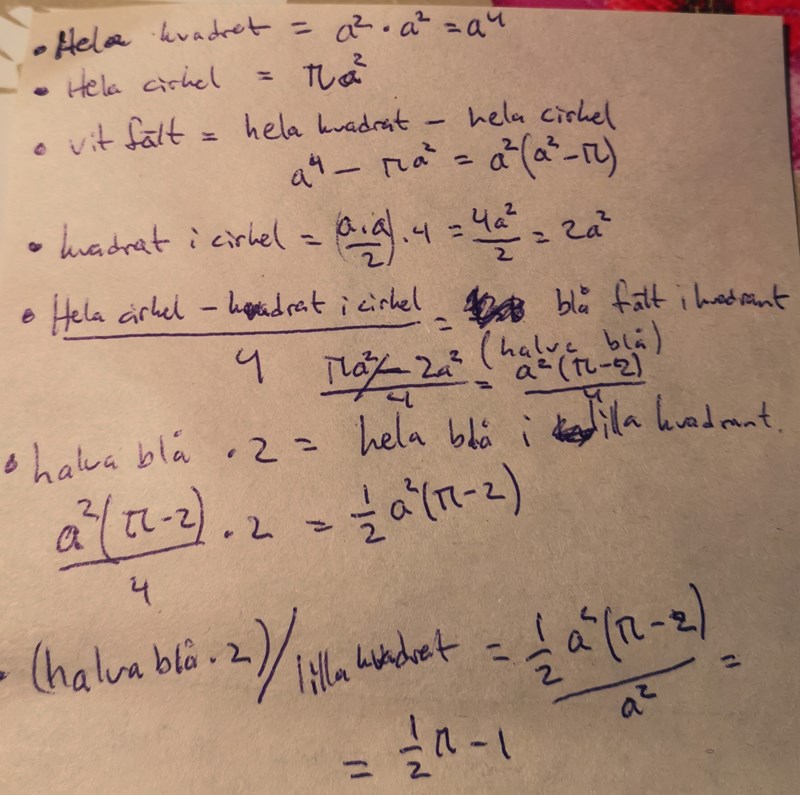 • Hela kvadrat = a² · a² = a⁴
• Hela cirkel = πa²
• vit fält = hela kvadrat – hela cirkel
a⁴ – πa² = a²(a² – π)
• kvadrat i cirkel = (a·a/2) · 4 = 4a²/2 = 2a²
• Hela cirkel – kvadrat i cirkel / 4 = blå fält i kvadrant
(halva blå)
πa² – 2a² / 4 = a²(π – 2) / 4
• halva blå · 2 = hela blå i lilla kvadrant.
a²(π – 2) / 4 · 2 = 1/2 a²(π – 2)
• (halva blå · 2) / lilla kvadrat = 1/2 a²(π – 2) / a² =
= 1/2 π – 1